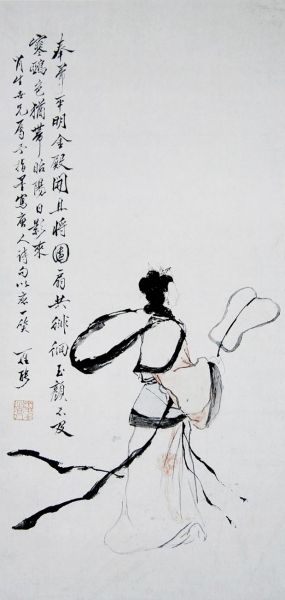 奉帚平明金殿開且將團扇共徘徊玉顏不及
寒鴉色猶帶昭陽日影來
生世兄屬指墨寫唐人詩句以應一笑